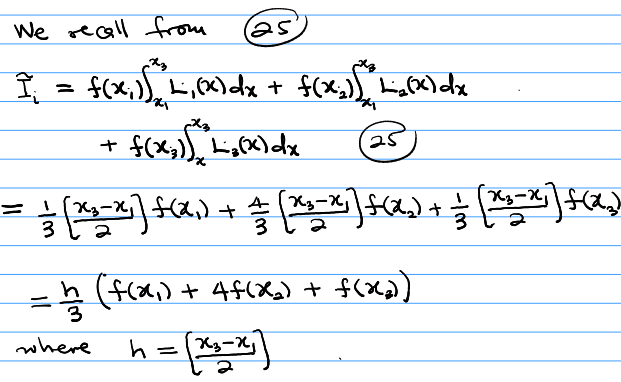 We recall from (25)
Ĩᵢ = f(x₁)∫_{x₁}^{x₃} L₁(x)dx + f(x₂)∫_{x₁}^{x₃} L₂(x)dx
+ f(x₃)∫_{x}^{x₃} L₃(x)dx (25)
= 1/3 [(x₃-x₁)/2] f(x₁) + 4/3 [(x₃-x₁)/2] f(x₂) + 1/3 [(x₃-x₁)/2] f(x₃)
= h/3 (f(x₁) + 4f(x₂) + f(x₃))
where h = [(x₃-x₁)/2]